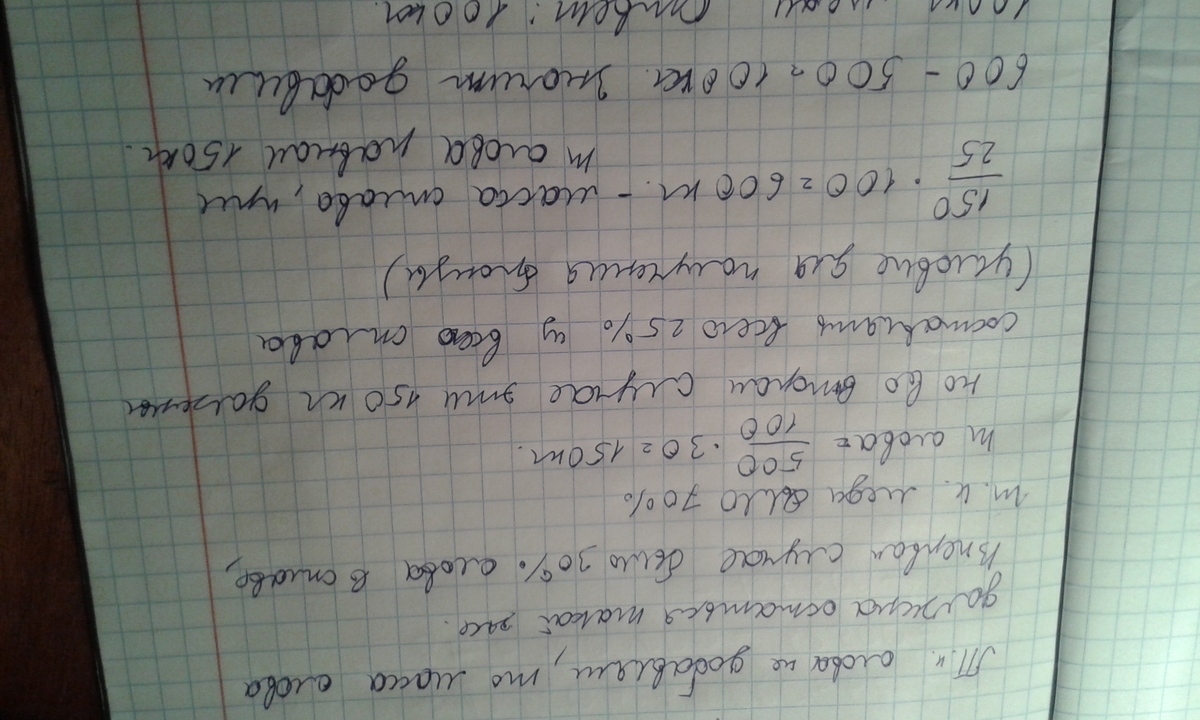 Т.к. олова не добавлял, то масса олова
должна остаться такой же.
В первом случае было 30% олова в сплаве,
т.к. меди было 70%
m олова = 500/100 · 30 = 150 кг.
но во втором случае эти 150 кг должны
составлять всего 25% из всего сплава
(условие для получения бронзы)
150/25 · 100 = 600 кг. - масса сплава, при
m олова равной 150 кг.
600 - 500 = 100 кг. Значит добавили
100 кг меди Ответ: 100 кг.